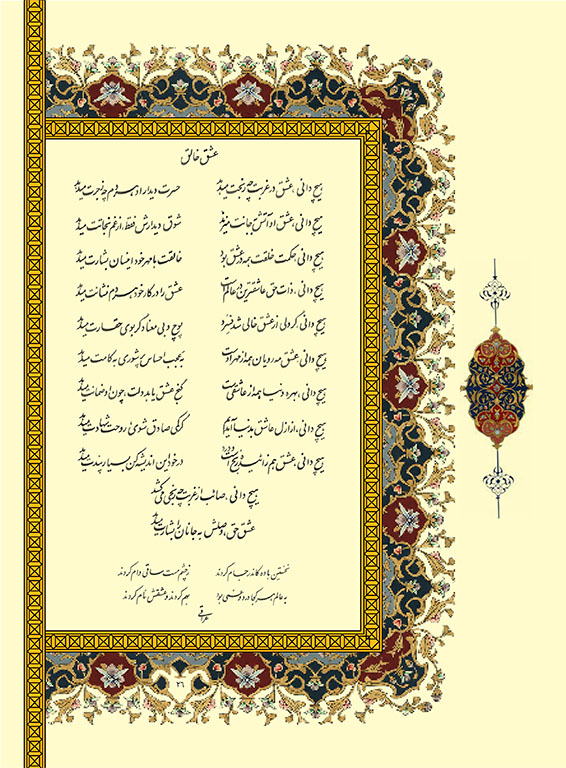 عشق خالق
هیچ دانی، عشق در غربت چه رنجت میدهد حسرت دیدار او هر دم چه زجرت میدهد
هیچ دانی، عشق او آتش بجانت میزند شوق دیدارش فقط، از غم نجاتت میدهد
هیچ دانی، حکمت خلقت همه در عشق بود خالقت با مهر خود اینسان بشارت میدهد
هیچ دانی، ذات حق عاشقترین در عالم است عشق را در کار خود هر دم نشانت میدهد
هیچ دانی، گر دلی از عشق خالی شد فسرد پوچ و بی معنا دگر بوی حقارت میدهد
هیچ دانی، عشق مه رویان همه از مهر اوست عجب احساس پرشوری به کامت میدهد
هیچ دانی، بهره دنیا همه از عاشقی است گنج عشق پابد ولت، چون ضمانت میدهد
هیچ دانی، از ازل عاشق بدنیا آمدیم گر کی صادق شوی روحت شهادت میدهد
هیچ دانی، عشق هم زائیده در خود این اندیشه کن بسیار پندت میدهد
هیچ دانی، صائب از غربت چه رنجی می کشد
عشق حق، وصلش به جانان را بشارت میدهد
نخستین باده کاندر جام کردند ز چشم مست ساقی وام کردند
به عالم هر کجا درد و غمی بود بهم کردند و عشقش نام کردند
عراقی
۲۶